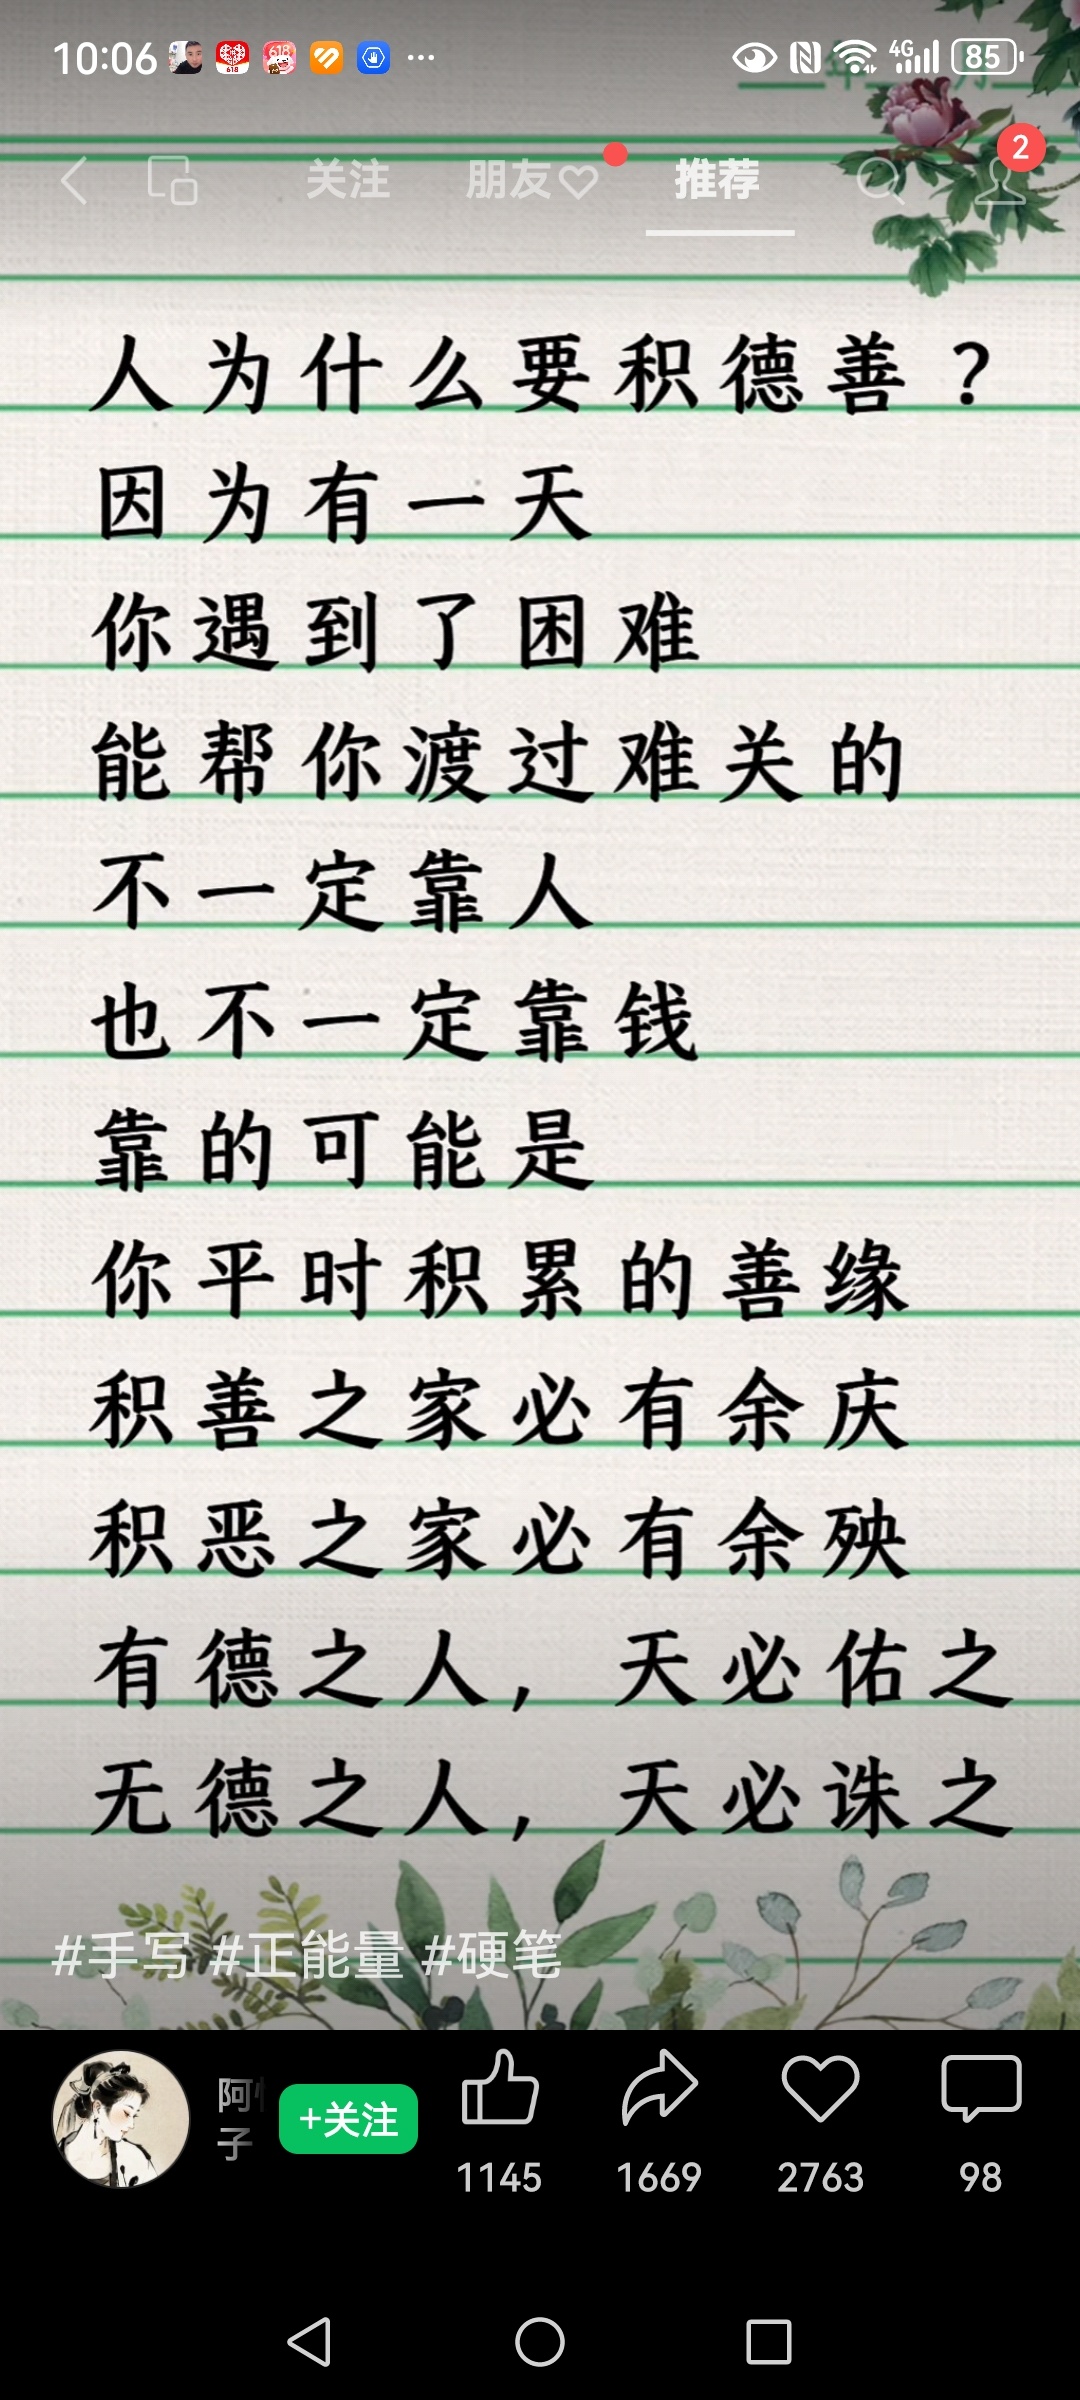 10:06
4G
85
年 月
关注 朋友 推荐
2
人为什么要积德善？
因为有一天
你遇到了困难
能帮你渡过难关的
不一定靠人
也不一定靠钱
靠的可能是
你平时积累的善缘
积善之家必有余庆
积恶之家必有余殃
有德之人，天必佑之
无德之人，天必诛之
#手写 #正能量 #硬笔
阿
子
+关注
1145 1669 2763 98